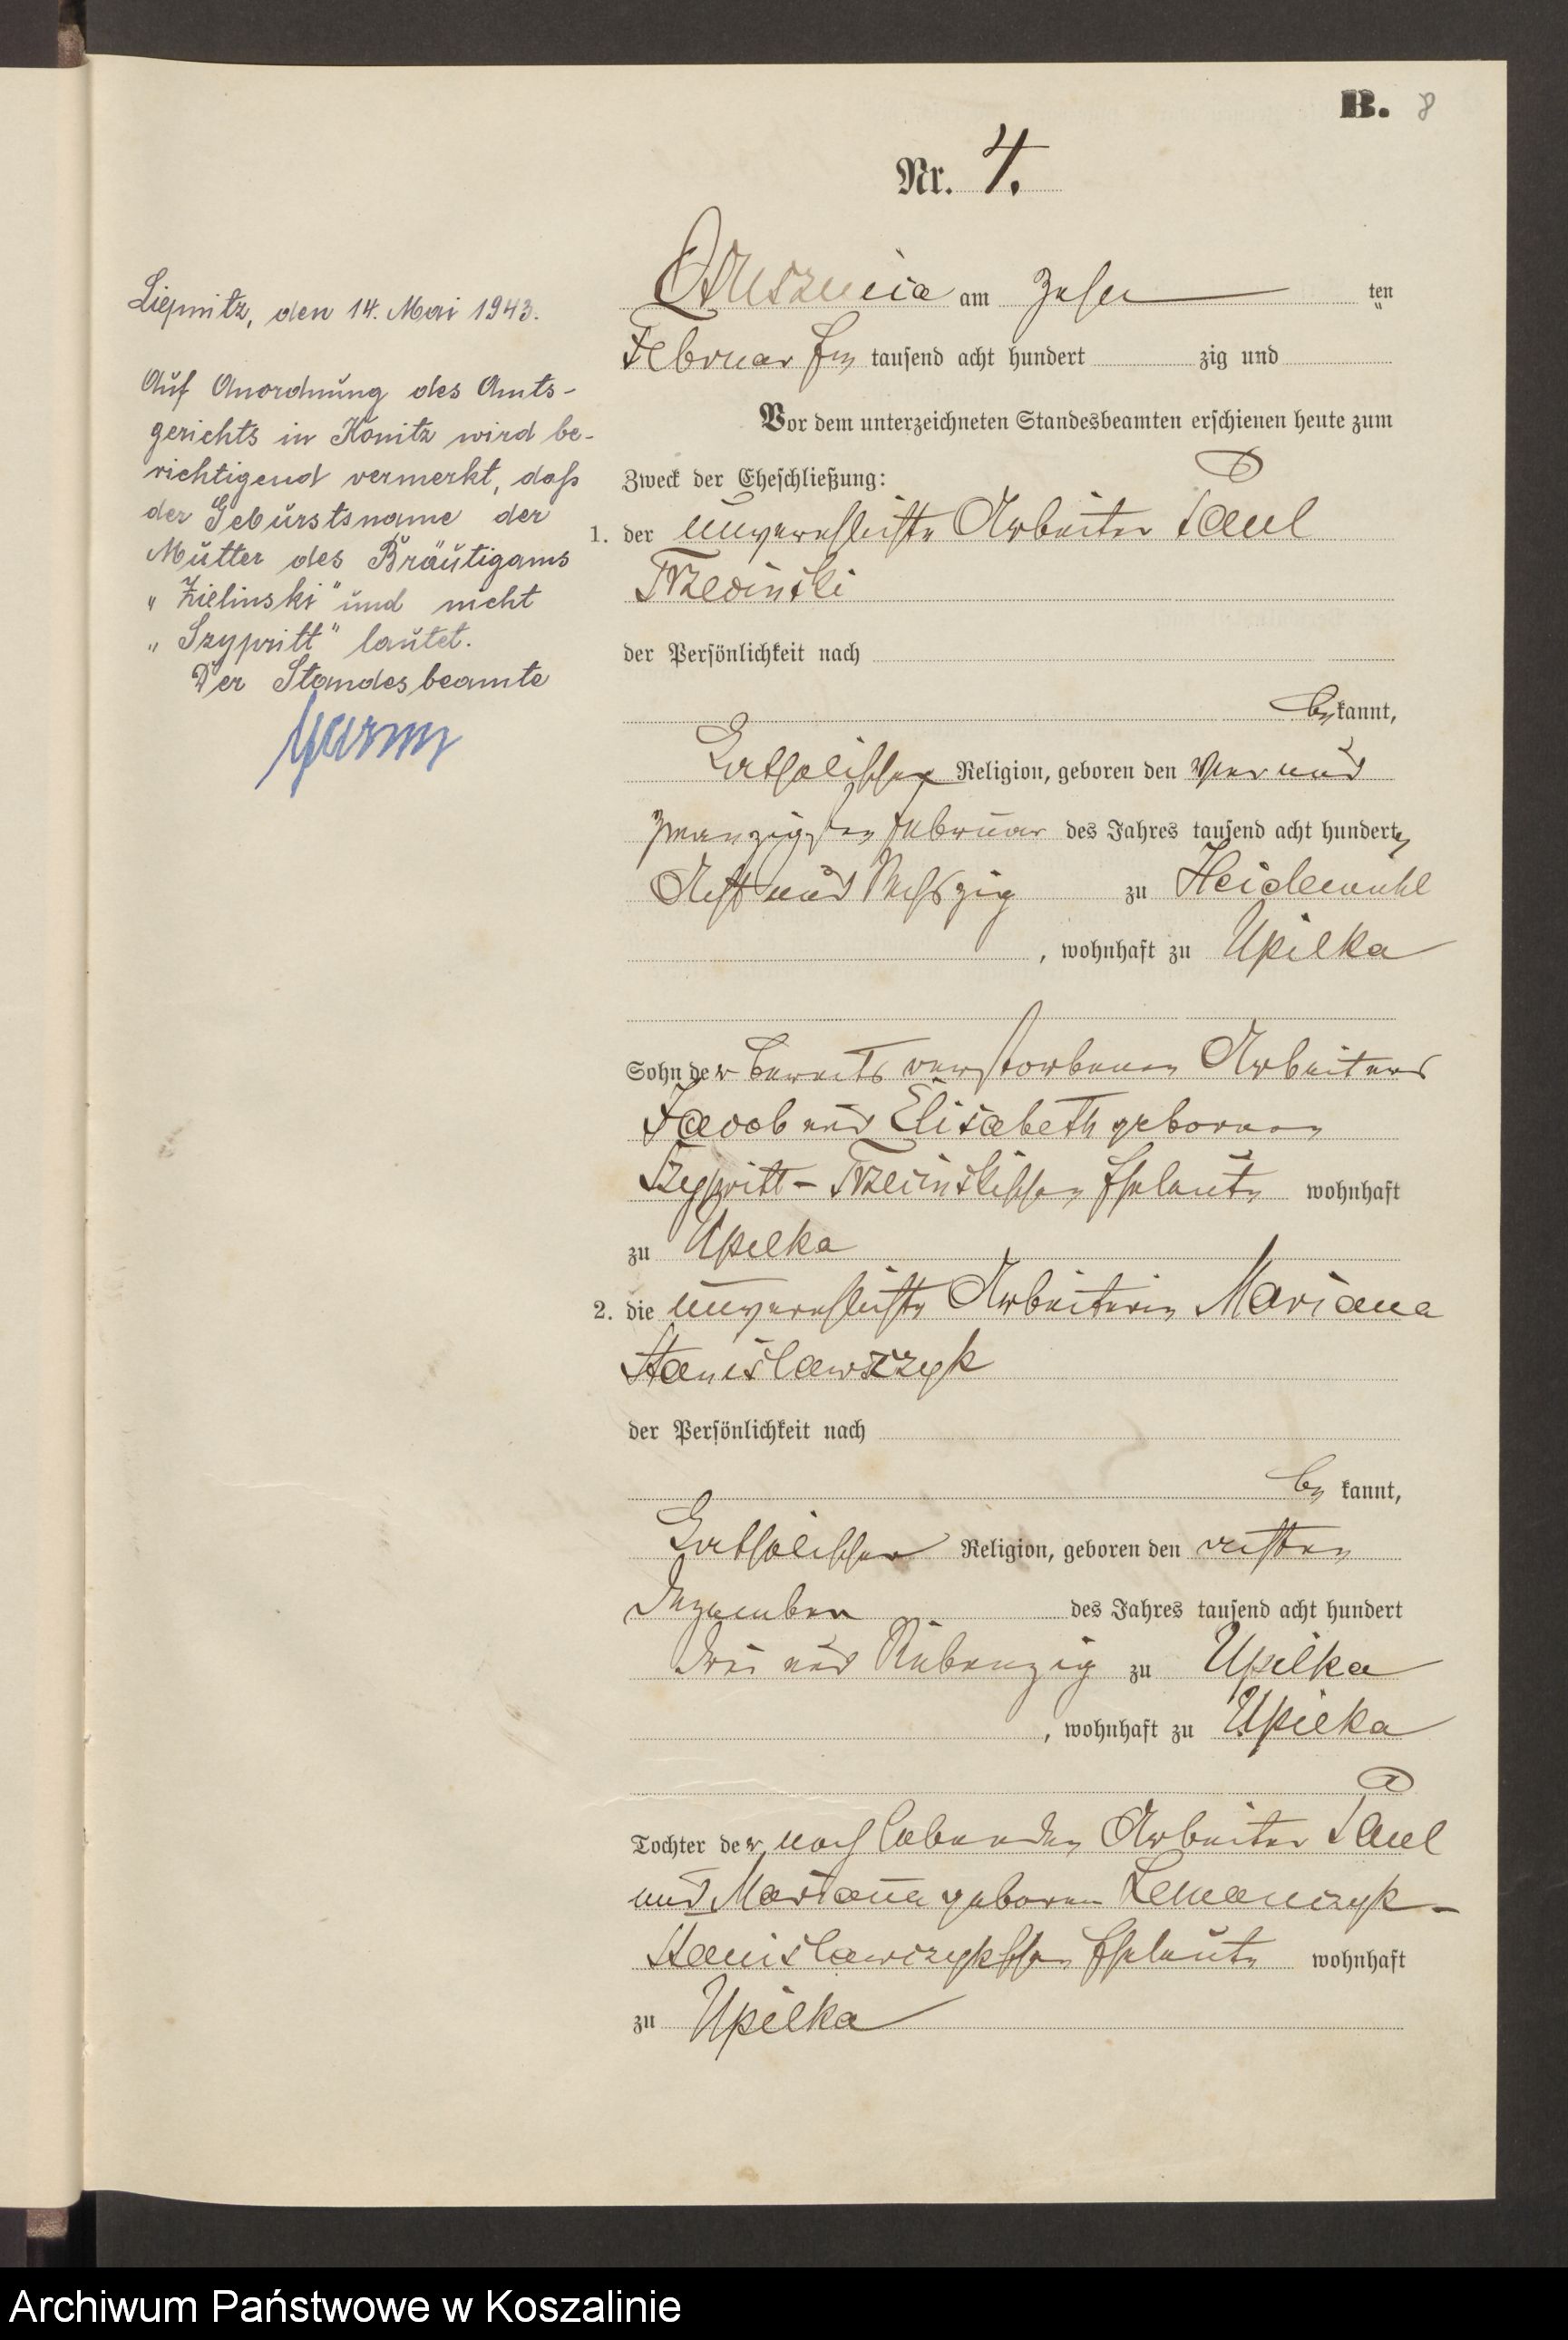 B. 8
Nr. 4.
Liepnitz, den 14. Mai 1943.
Auf Anordnung des Amts-
gerichts in Konitz wird be-
richtigend vermerkt, daß
der Geburstsname der
Mutter des Bräutigams
„Zielinski" und nicht
„Szypritt" lautet.
Der Standesbeamte
am zehn ten
Februar Ein tausend acht hundert zig und
Vor dem unterzeichneten Standesbeamten erschienen heute zum
Zweck der Eheschließung:
1. der unverehelichte Arbeiter Paul
Trzecinski
der Persönlichkeit nach
be kannt,
katholischer Religion, geboren den vier und
zwanzigsten Februar des Jahres tausend acht hundert
Acht und Sechszig zu Heidemühl
, wohnhaft zu Upilka
Sohn der bereits verstorbenen Arbeiter
Jacob und Elisabeth geborenen
Szypritt - Trzecinskischen Eheleute wohnhaft
zu Upilka
2. die unverehelichte Arbeiterin Mariana
Stanislawszzyk
der Persönlichkeit nach
be kannt,
katholischer Religion, geboren den
Dezember des Jahres tausend acht hundert
drei und Siebenzig zu Upilka
, wohnhaft zu Upilka
Tochter der noch lebenden Arbeiter Paul
und Mariana geboren Lemanczyk -
Stanislawczykschen Eheleute wohnhaft
zu Upilka
Archiwum Państwowe w Koszalinie